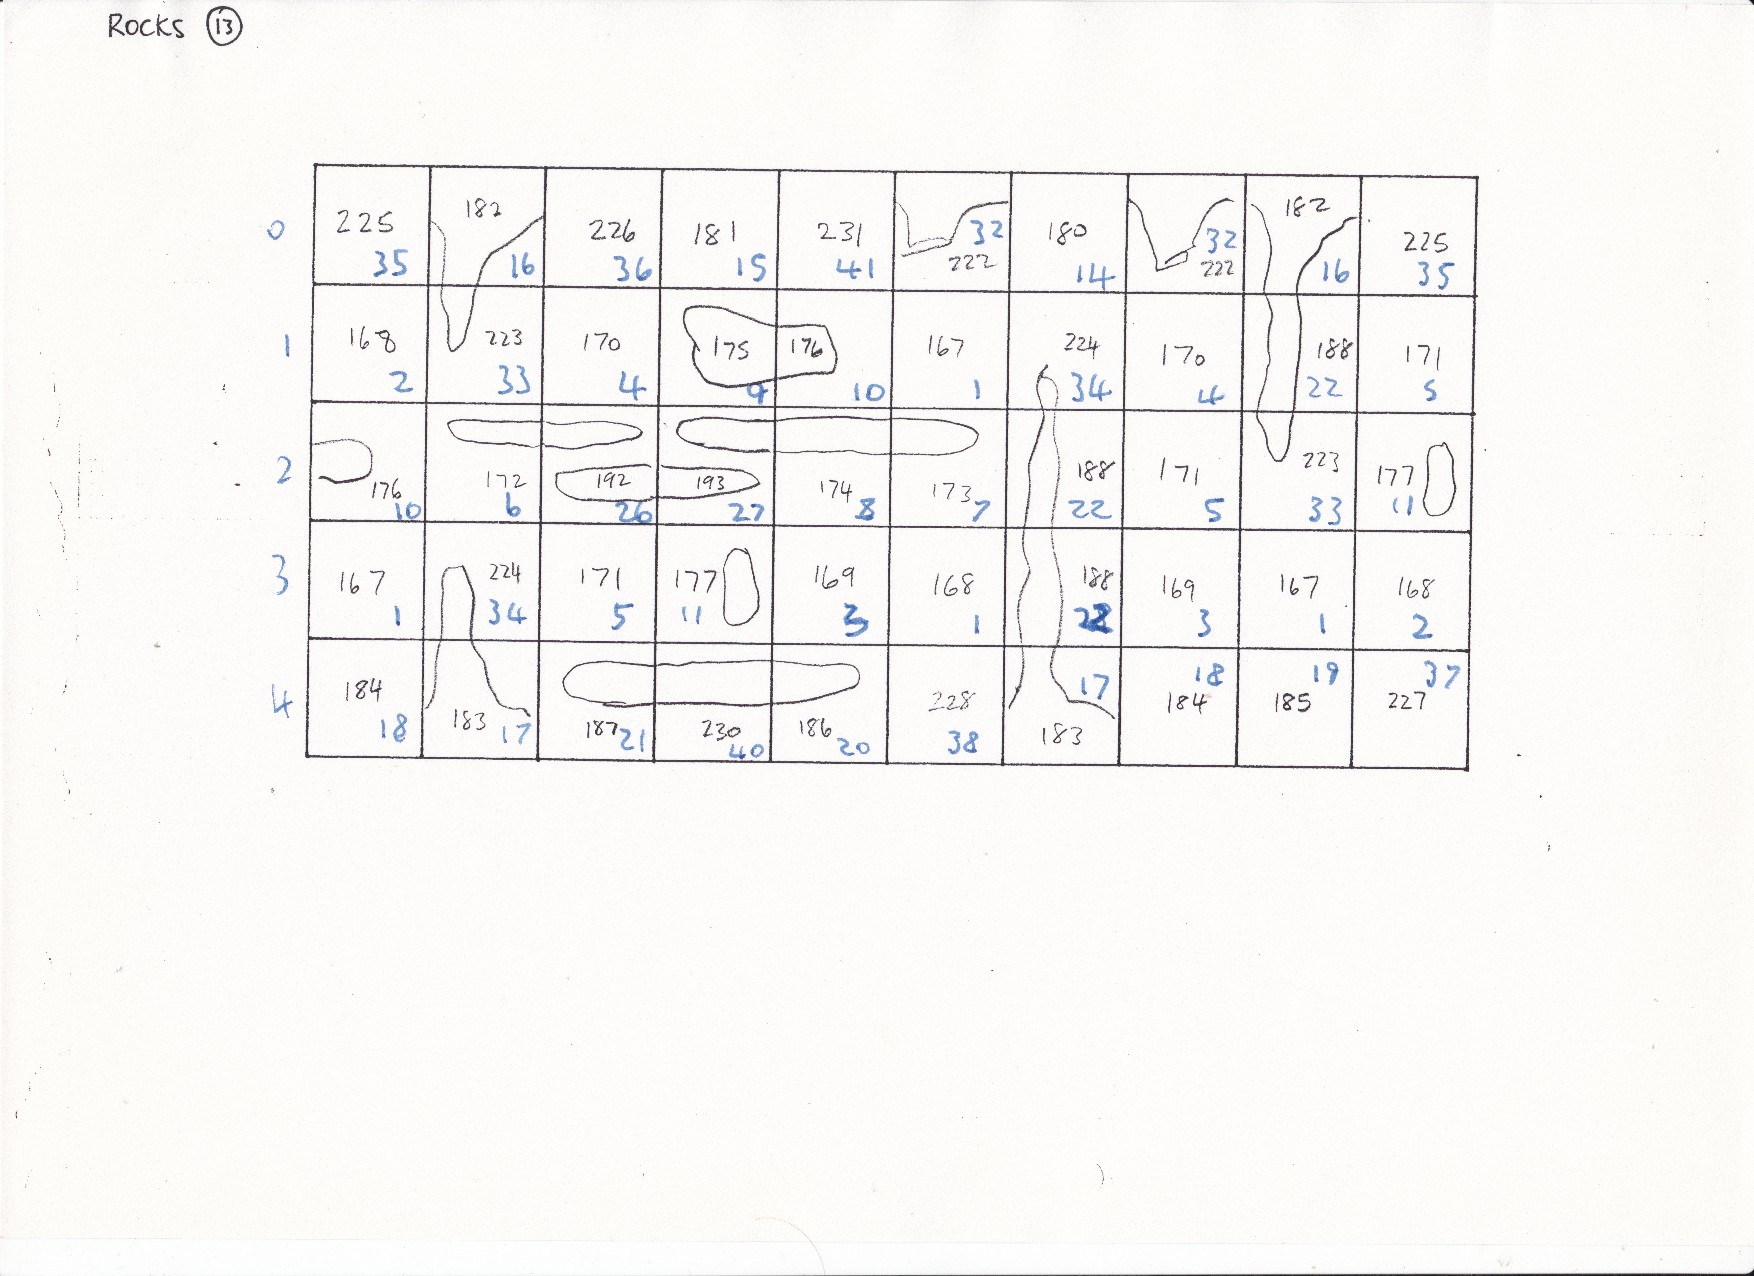 ROCKS 13
0 225 182 226 181 231 32 180 32 182 225
35 16 36 15 41 222 14 222 16 35
1 168 223 170 175 176 167 224 170 188 171
2 33 4 9 10 1 34 4 22 5
2 176 172 192 193 174 173 188 171 223 177
10 6 26 27 8 7 22 5 33 11
3 167 224 171 177 169 168 188 169 167 168
1 34 5 11 3 1 22 3 1 2
4 184 183 187 230 186 228 17 18 19 37
18 17 21 40 20 38 183 184 185 227